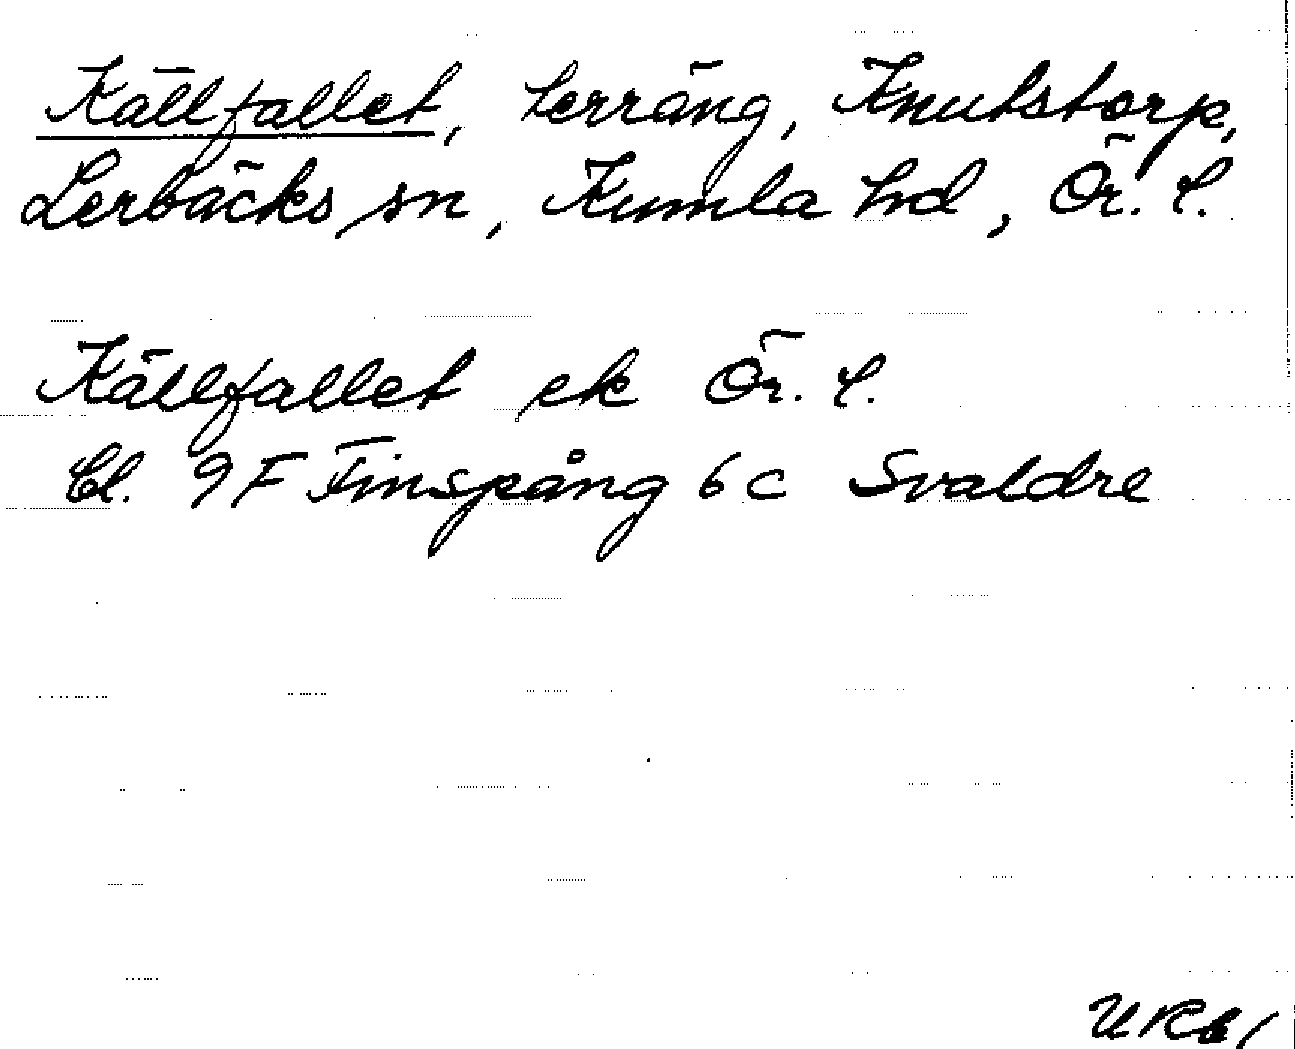 Källfallet, terräng, Knutstorp,
Lerbäcks sn, Kumla hd, Ör. l.
Källfallet ek Ör. l.
Bl. 9F Finspång 6c Svaldre